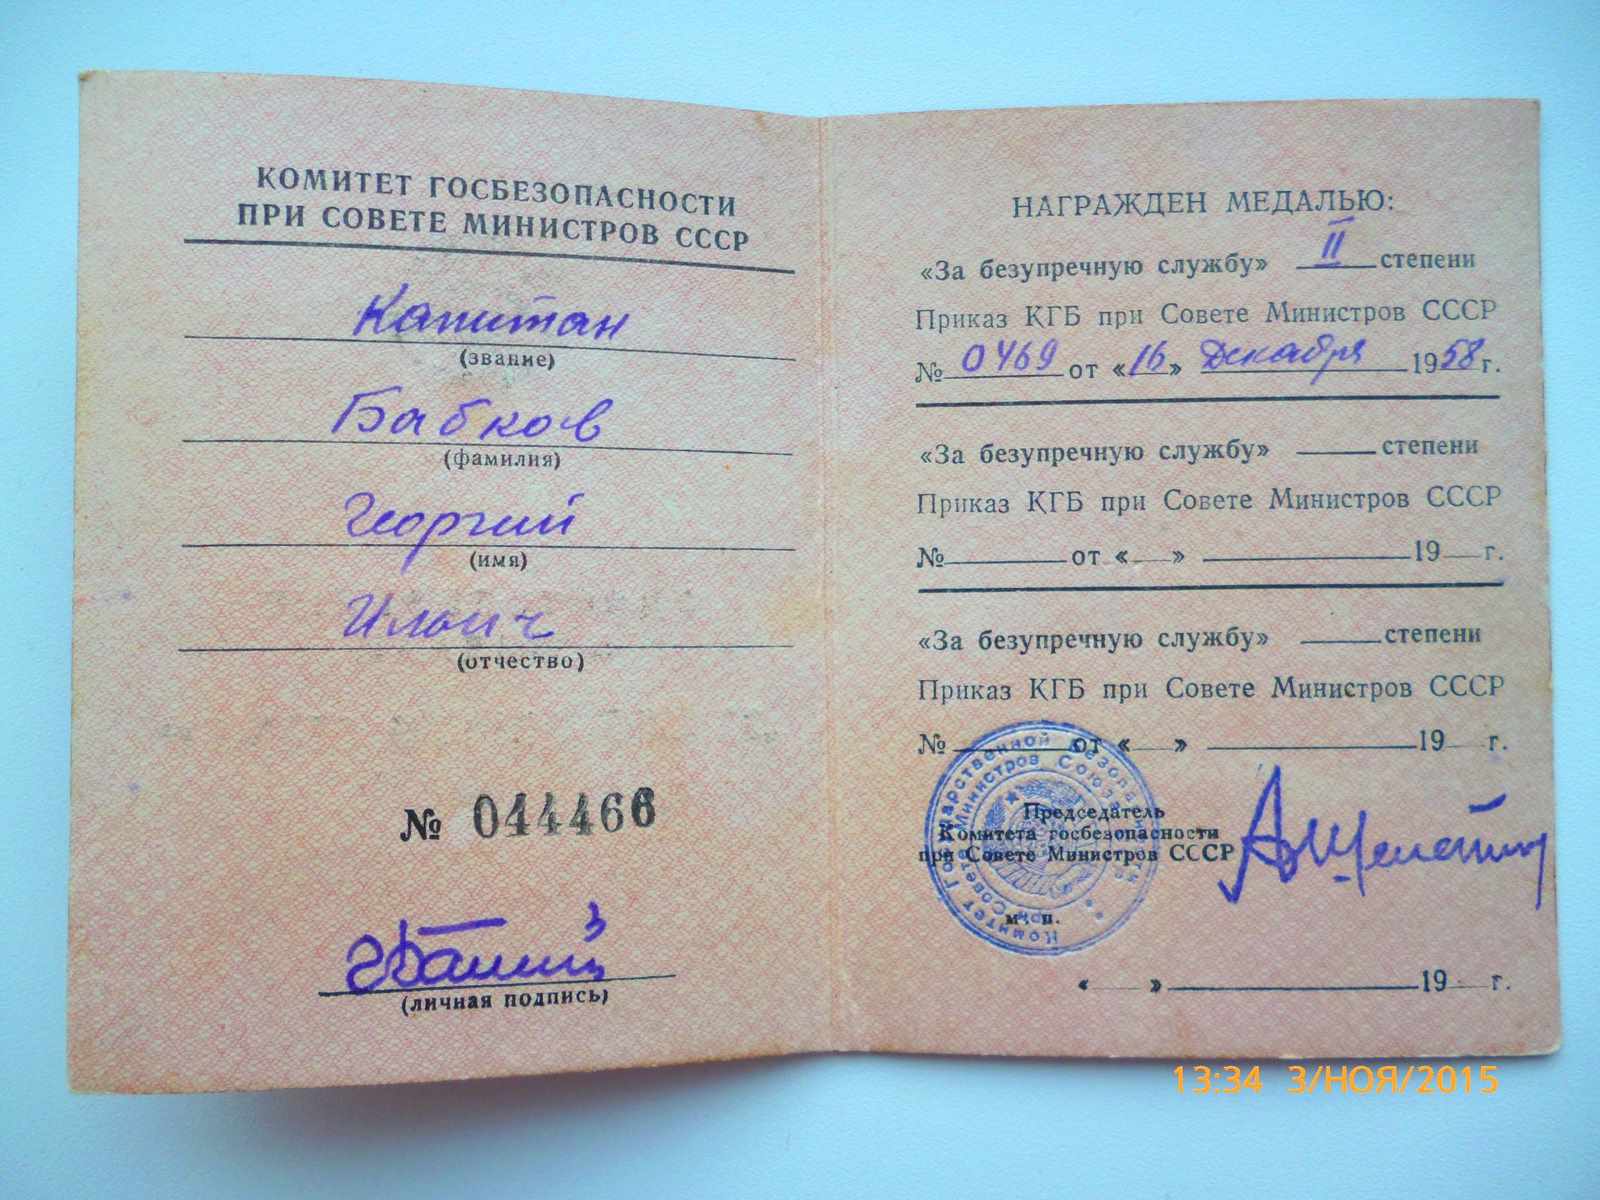 КОМИТЕТ ГОСБЕЗОПАСНОСТИ
ПРИ СОВЕТЕ МИНИСТРОВ СССР
Капитан
(звание)
Бабков
(фамилия)
Георгий
(имя)
Ильич
(отчество)
№ 044466
(личная подпись)
НАГРАЖДЕН МЕДАЛЬЮ:
«За безупречную службу» II степени
Приказ КГБ при Совете Министров СССР
№ 0469 от «16» Декабря 1958 г.
«За безупречную службу» ____ степени
Приказ КГБ при Совете Министров СССР
№ ____ от «__» ____ 19__ г.
«За безупречную службу» ____ степени
Приказ КГБ при Совете Министров СССР
№ ____ от «__» ____ 19__ г.
Комитет Государственной Безопасности
при Совете Министров Союза
Председатель
Комитета госбезопасности
при Совете Министров СССР
А Шелепин
м. п.
«__» ____ 19__ г.
13:34 3/НОЯ/2015